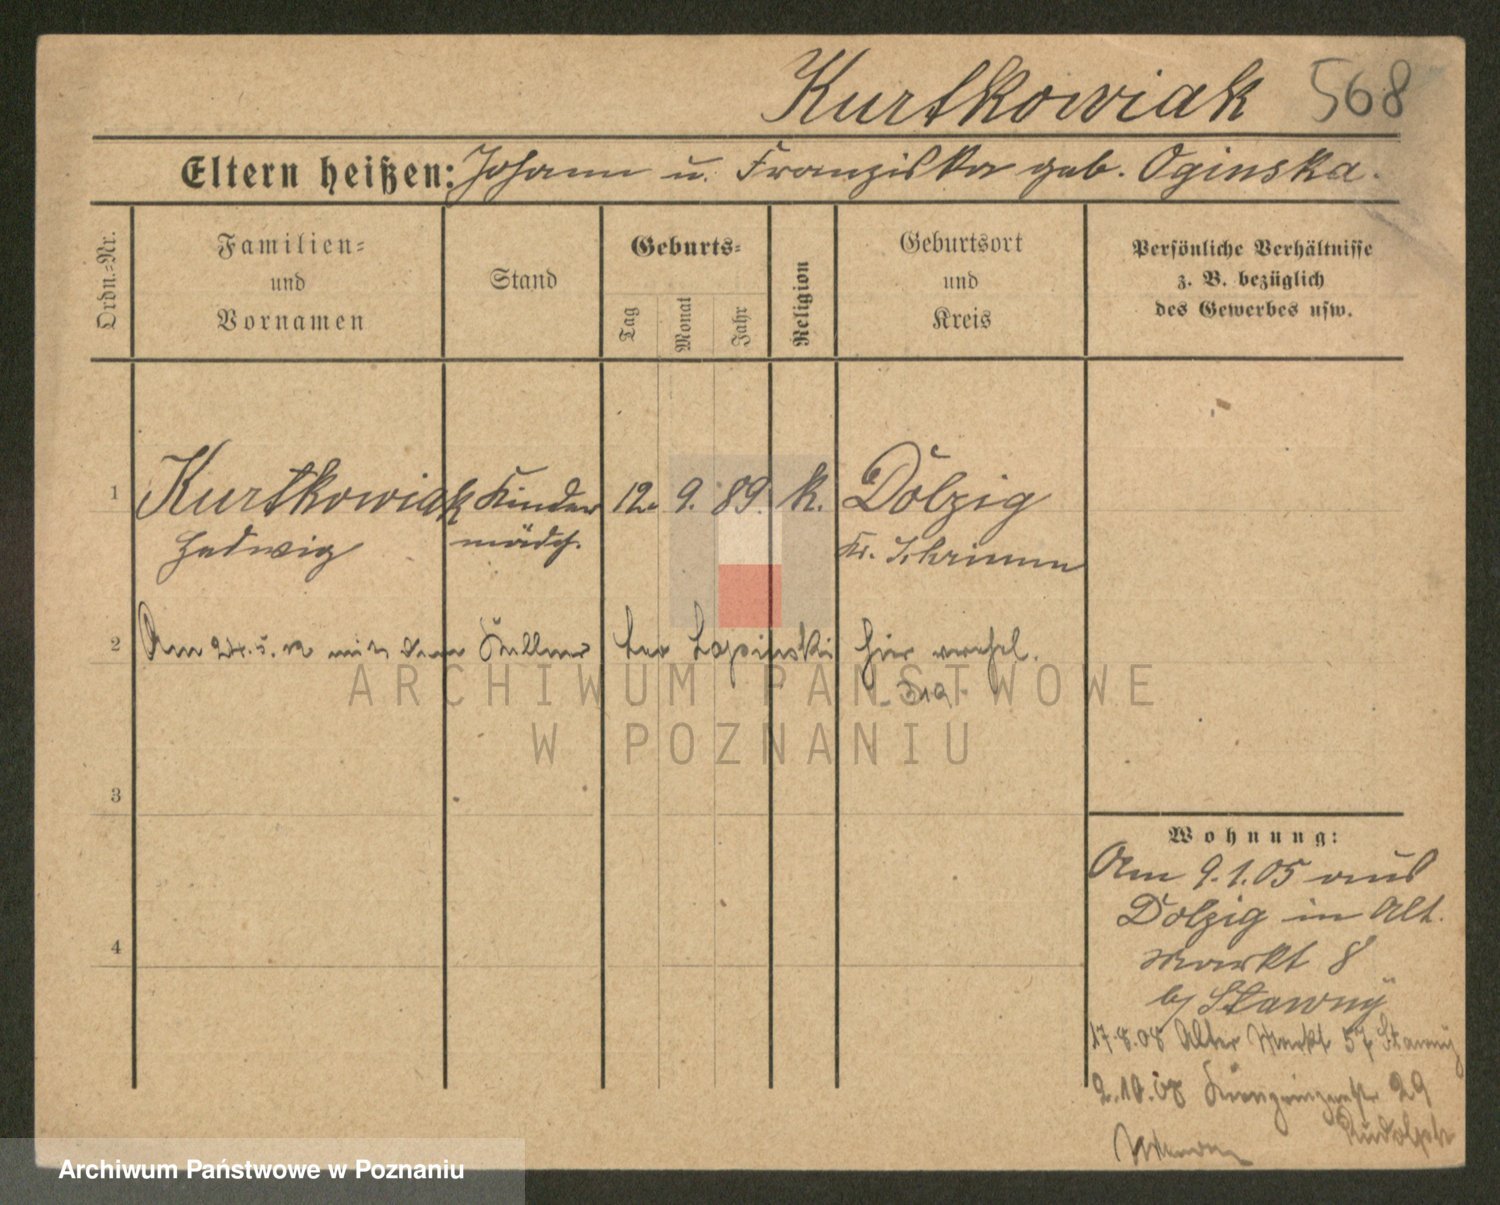 Kurtkowiak 568
Eltern heißen: Johann u. Franziska geb. Oginska.
Ordn.-Nr.
Familien-
und
Vornamen
Stand
Geburts-
Tag
Monat
Jahr
Religion
Geburtsort
und
Kreis
Persönliche Verhältnisse
z. B. bezüglich
des Gewerbes usw.
1 Kurtkowiak Kinder 12. 9. 89. k. Dolzig
Hedwig mädch. Kr. Schrimm
2 Am 24.5.12 mit dem Kellner Lapinski hier verehel.
3
4
Wohnung:
Am 9.1.05 aus
Dolzig in Alt.
Markt 8
b/ Stawny
17.8.08 Alter Markt 57 Stawny
2.10.08 29
Rudolph
ARCHIWUM PAŃSTWOWE
W POZNANIU
Archiwum Państwowe w Poznaniu